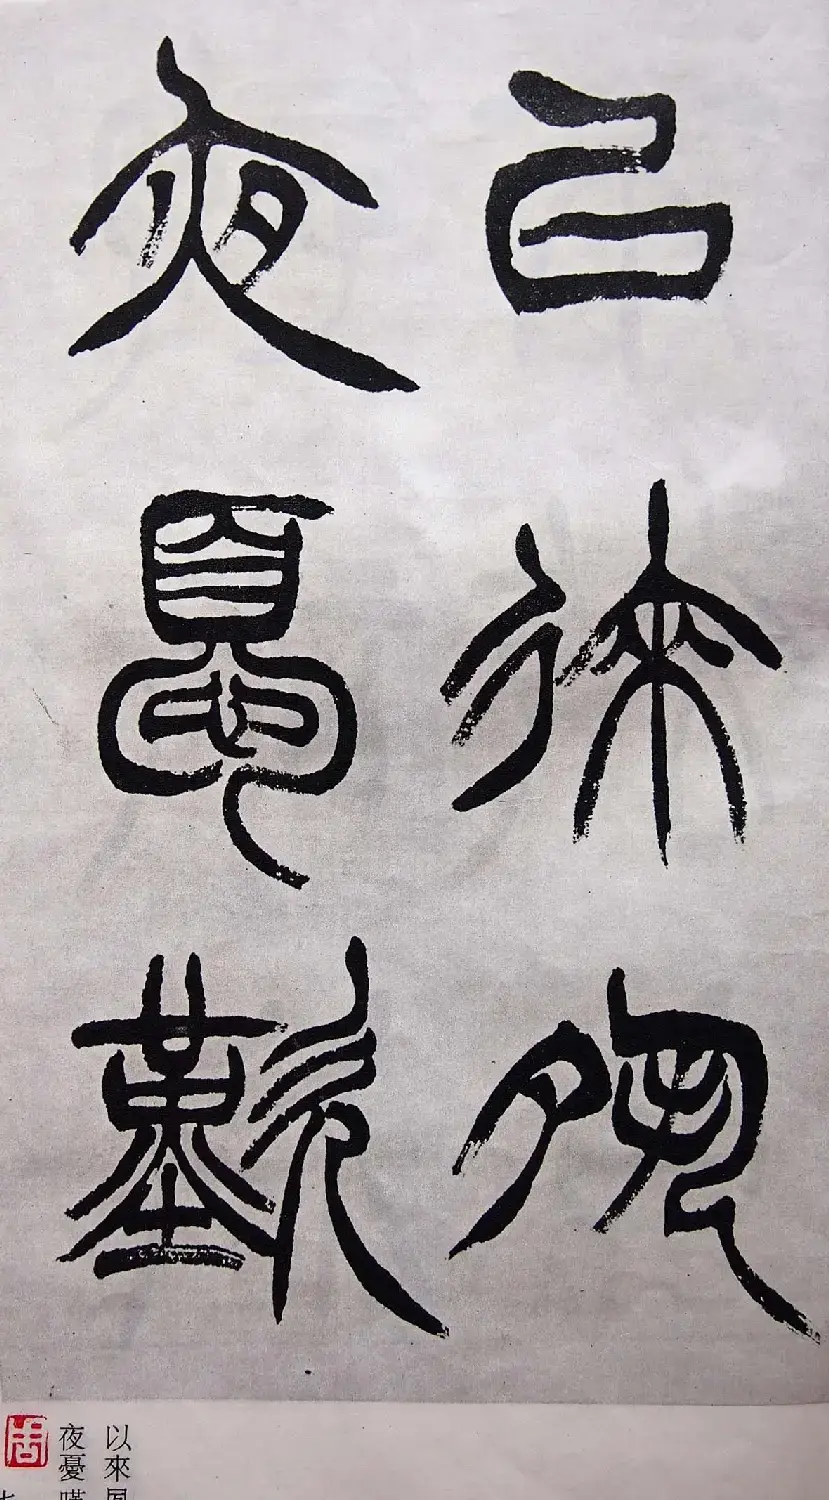 以來夙
夜憂歎
以來夙
夜憂嘆